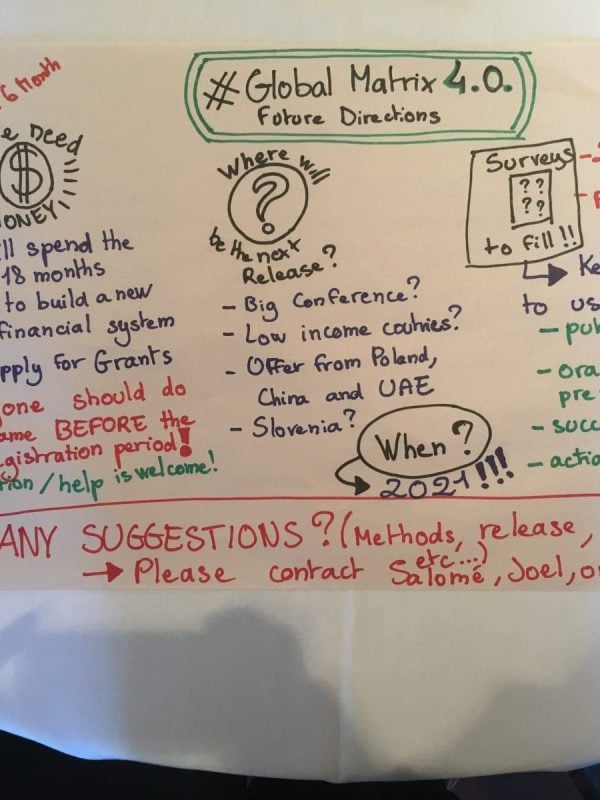 # Global Matrix 4.0.
Future Directions
6 Month
e need
$
ONEY!
ll spend the
18 months
to build a new
financial system
pply for Grants
one should do
ame BEFORE the
gistration period!
tion / help is welcome!
Where will
?
be the next
Release?
- Big Conference?
- Low income countries?
- Offer from Poland,
China and UAE
- Slovenia?
When?
2021!!!
Surveys
??
??
to fill!!
Ke
to us
- pu
- ora
pre
- succ
- actio
ANY SUGGESTIONS? (Methods, release,
etc...)
→ Please contact Salomé, Joel, o